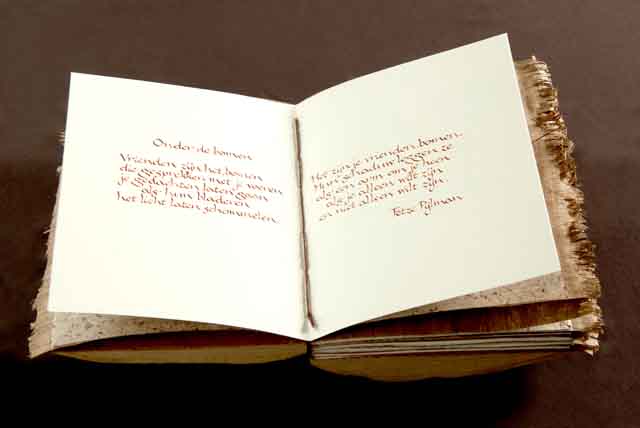 Onder de bomen
Vrienden zijn het, bomen
die gesprekken met je voeren
je gedachten laten gaan
als hun bladeren
het licht laten schommelen.
Het zijn je vrienden, bomen.
Hun schaduw leggen ze
als een arm om je heen
als je alleen wilt zijn
en niet alleen wilt zijn.
Tetze Pijlman